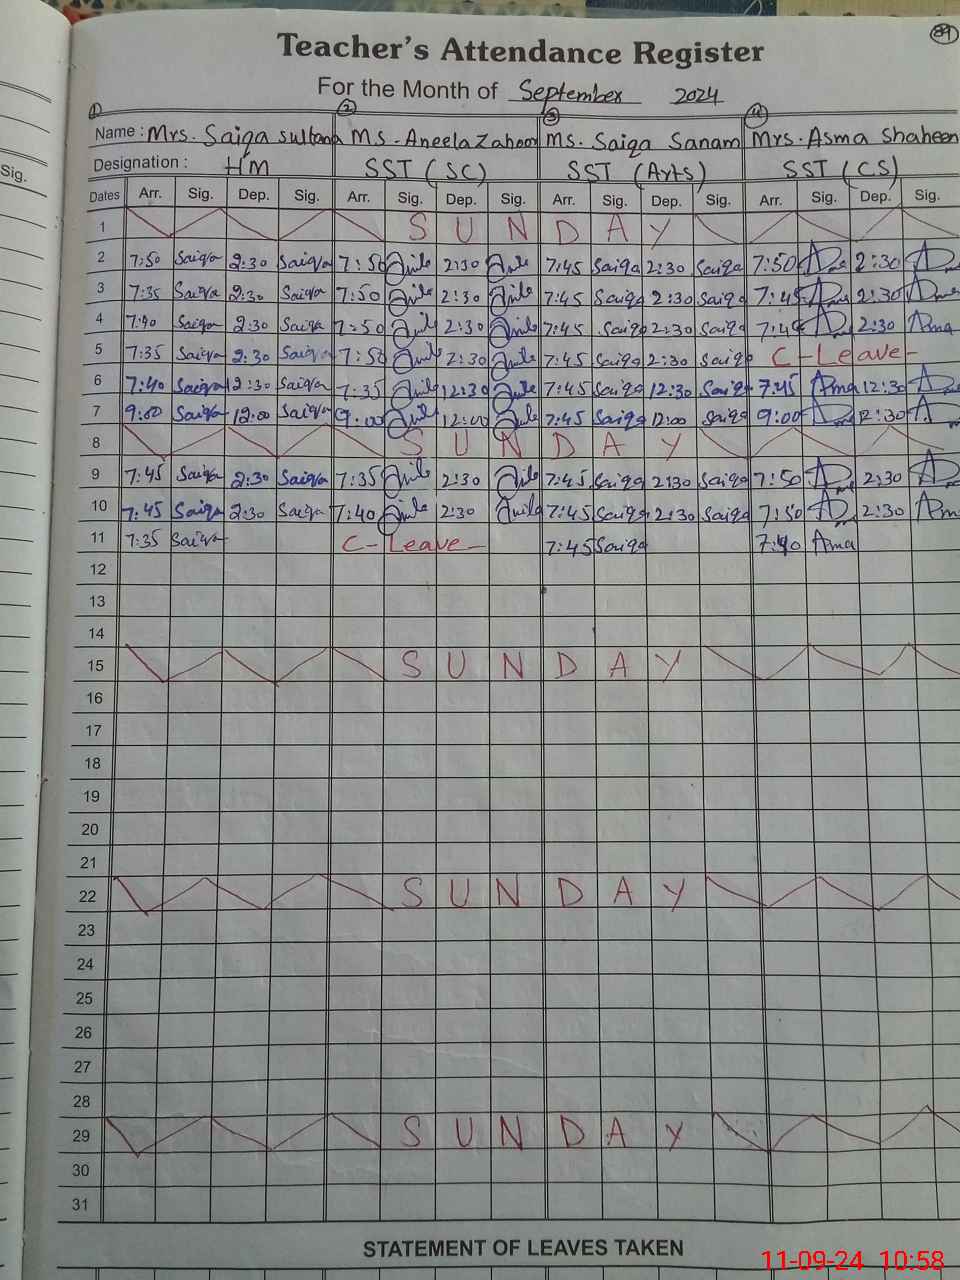 89
Teacher's Attendance Register
For the Month of September 2024
1 2 3 4
Name : Mrs. Saiqa Sultana Ms. Aneela Zahoor Ms. Saiqa Sanam Mrs. Asma Shaheen
Sig.
Designation : HM SST (SC) SST (Arts) SST (CS)
Dates Arr. Sig. Dep. Sig. Arr. Sig. Dep. Sig. Arr. Sig. Dep. Sig. Arr. Sig. Dep. Sig.
1 SUNDAY
2 7:50 Saiqa 2:30 Saiqa 7:50 2:30 7:45 Saiqa 2:30 Saiqa 7:50 2:30
3 7:35 Saiqa 2:30 Saiqa 7:50 2:30 7:45 Saiqa 2:30 Saiqa 7:45 2:30
4 7:40 Saiqa 2:30 Saiqa 7:50 2:30 7:45 Saiqa 2:30 Saiqa 7:45 2:30 Asma
5 7:35 Saiqa 2:30 Saiqa 7:50 2:30 7:45 Saiqa 2:30 Saiqa C-Leave-
6 7:40 Saiqa 12:30 Saiqa 7:35 12:30 7:45 Saiqa 12:30 Saiqa 7:45 Asma 12:30
7 9:00 Saiqa 12:00 Saiqa 9:00 12:00 7:45 Saiqa 12:00 Saiqa 9:00 12:30
8 SUNDAY
9 7:45 Saiqa 2:30 Saiqa 7:35 2:30 7:45 Saiqa 2:30 Saiqa 7:50 2:30
10 7:45 Saiqa 2:30 Saiqa 7:40 2:30 7:45 Saiqa 2:30 Saiqa 7:50 2:30
11 7:35 Saiqa C-Leave- 7:45 Saiqa 7:40 Asma
12
13
14
15 SUNDAY
16
17
18
19
20
21
22 SUNDAY
23
24
25
26
27
28
29 SUNDAY
30
31
STATEMENT OF LEAVES TAKEN
11-09-24 10:58